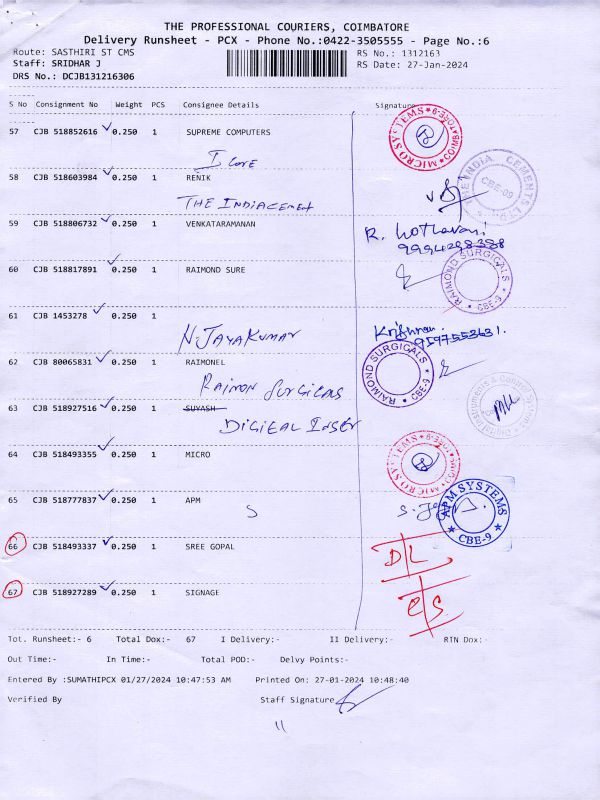 THE PROFESSIONAL COURIERS, COIMBATORE
Delivery Runsheet - PCX - Phone No.:0422-3505555 - Page No.:6
Route: SASTHIRI ST CMS RS No.: 1312163
Staff: SRIDHAR J RS Date: 27-Jan-2024
DRS No.: DCJB131216306
S No Consignment No Weight PCS Consignee Details Signature
57 CJB 518852616 0.250 1 SUPREME COMPUTERS
MICRO SYSTEMS
58 CJB 518603984 0.250 1 RENIK
THE INDIACEMENT
THE INDIA CEMENTS LTD CBE-09
59 CJB 518806732 0.250 1 VENKATARAMANAN
60 CJB 518817891 0.250 1 RAIMOND SURE
RAIMOND SURGICALS CBE-9
61 CJB 1453278 0.250 1
N JAYAKUMAR
62 CJB 80065831 0.250 1 RAIMONEL
RAIMOND SURGICALS CBE-9
63 CJB 518927516 0.250 1 SUYASH
64 CJB 518493355 0.250 1 MICRO
MICRO SYSTEMS
65 CJB 518777837 0.250 1 APM
APM SYSTEMS CBE-9
66 CJB 518493337 0.250 1 SREE GOPAL
DL
67 CJB 518927289 0.250 1 SIGNAGE
Tot. Runsheet:- 6 Total Dox:- 67 I Delivery:- II Delivery:- RTN Dox:-
Out Time:- In Time:- Total POD:- Delvy Points:-
Entered By :SUMATHIPCX 01/27/2024 10:47:53 AM Printed On: 27-01-2024 10:48:40
Verified By Staff Signature